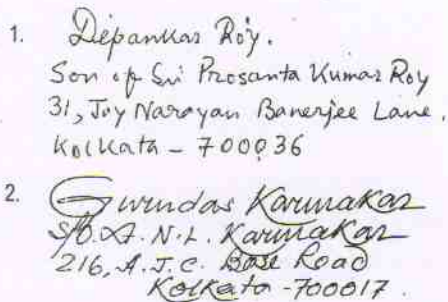 1. Dipankar Roy.
Son of Sri Prosanta Kumar Roy
31, Joy Narayan Banerjee Lane,
Kolkata - 700036
2. Gurudas Karmakar
S/O. Lt. N.L. Karmakar
216, A.J.C. Bose Road
Kolkata - 700017.